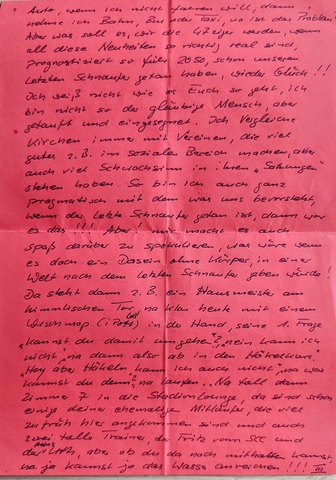 Auto, wenn ich nicht fahren will, dann
nehme ich Bahn, Bus oder Taxi, wo ist das Problem
Aber was soll es, wir die 47iger werden, wenn
all diese Neuheiten so richtig real sind,
prognostiziert so für 2050, schon unseren
letzten Schnaufer getan haben, wieder Glück!!!
Ich weiß nicht wie es Euch so geht, ich
bin nicht so der gläubige Mensch, aber
getauft und eingesegnet. Ich vergleiche
Kirchen immer mit Vereinen, die viel
gutes z.B. im sozialen Bereich machen, aber
auch viel Schwachsinn in ihren "Satzungen"
stehen haben. So bin ich auch ganz
pragmatisch mit dem was uns bevorsteht,
wenn der letzte Schnaufer getan ist, dann war
es das!!! Aber! mir macht es auch
Spaß darüber zu spekulieren, was wäre wenn
es doch ein Dasein ohne Körper, in einer
Welt nach dem letzten Schnaufer geben würde!
Da steht dann z.B. ein Hausmeister am
himmlischen Tor, na klar heute mit einem
Wischmop (i Pott) in der Hand, seine 1. Frage
"kannst du damit umgehen?" nein kann ich
nicht, "na dann also ab in den Häkelkurs"
"Hey aber Häkeln kann ich auch nicht", na was
kannst du denn, "na laufen". Na toll dann
Zimmer 7 in die Stadionlounge, da sind schon
einige deiner ehemaligen Mitläufer, die viel
zu früh hier angekommen sind und auch
zwei tolle Trainer, der Fritz vom SCC und
der Heinz LAPh, aber ob du da noch mithalten kannst,
na ja kannst ja das Wasser anreichen!!!
III